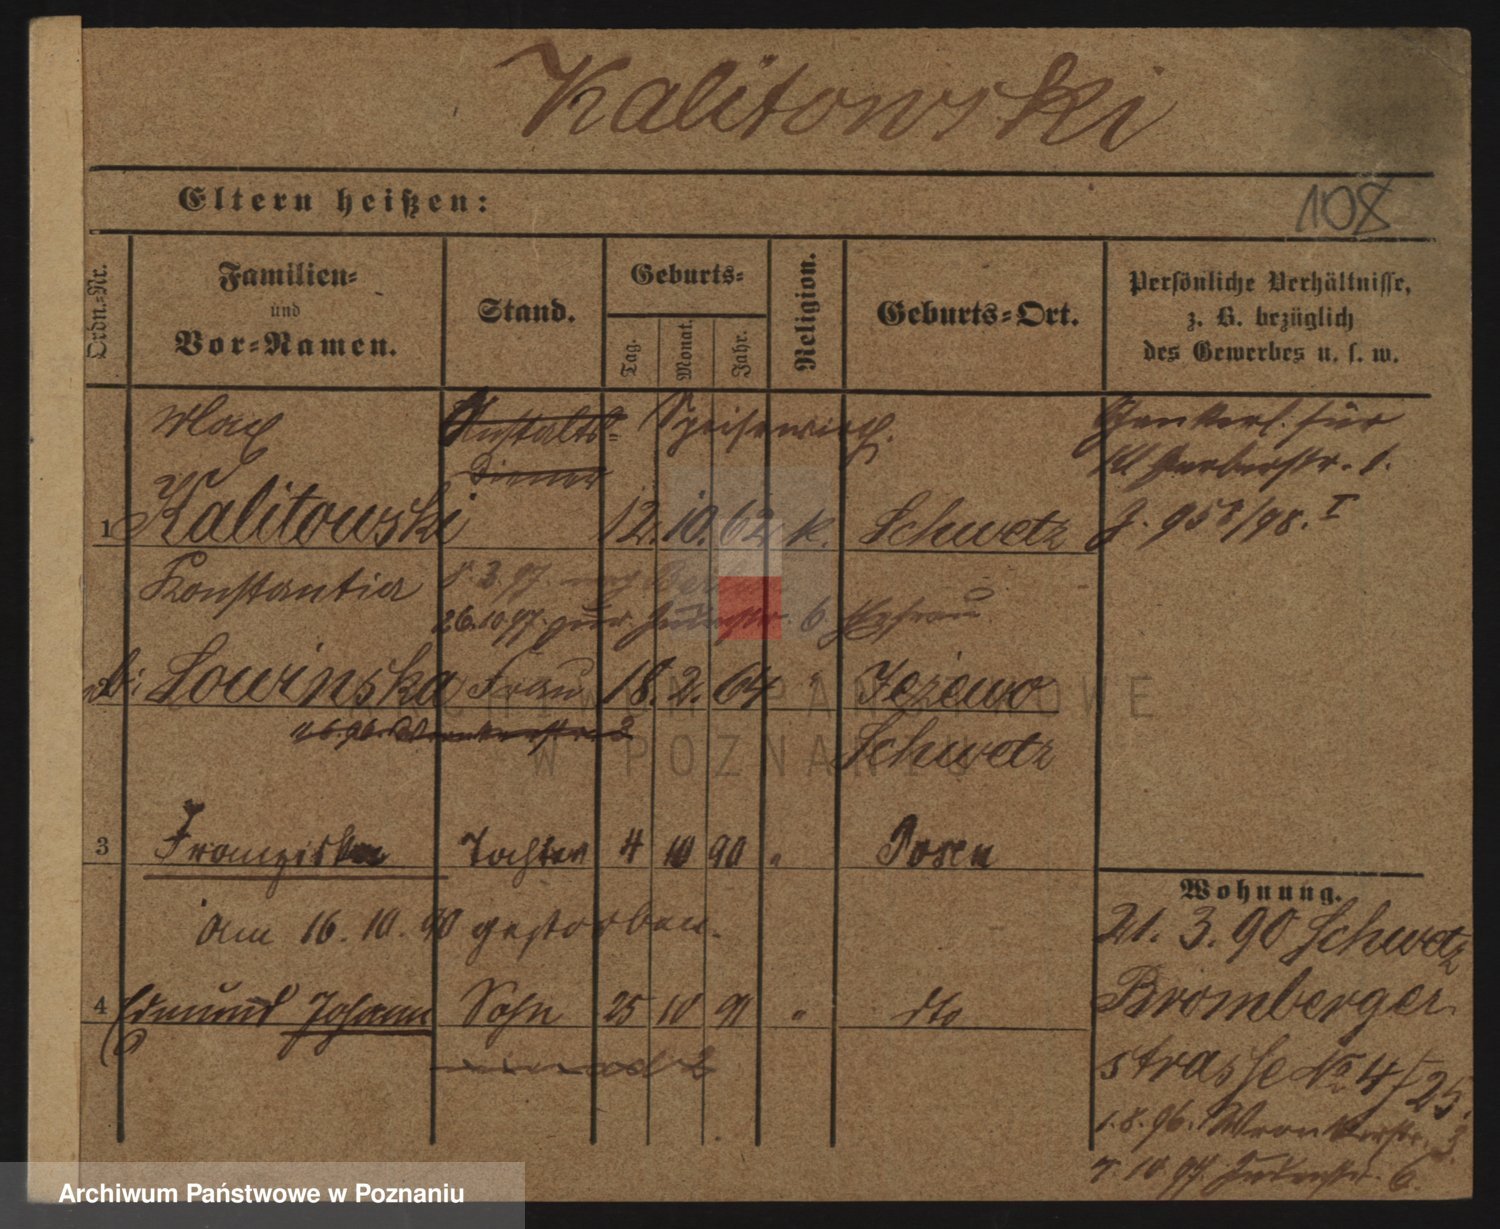 Kalitowski
Eltern heißen:
108
Ordn.-Nr.
Familien-
und
Vor-Namen.
Stand.
Geburts-
Tag.
Monat.
Jahr.
Religion.
Geburts-Ort.
Persönliche Verhältnisse,
z. B. bezüglich
des Gewerbes u. s. w.
Max Anstalts- Speisewirth.
Diener
1 Kalitowski 12. 10. 62 k. Schwetz
Konstantia
26.10.97 zur. 6
2 Lowinska Frau 18. 2. 64 " Jezewo
Schwetz
3 Franziska Tochter 4 10 90 " Posen
am 16. 10. 90 gestorben.
4 Edmund Johann Sohn 25 10 91 " dto
Wohnung.
21. 3. 90 Schwetz
Bromberger
strasse No 4
1. 8. 96. Wronkerstr. 3
10 97 6.
ARCHIWUM PAŃSTWOWE
W POZNANIU
Archiwum Państwowe w Poznaniu